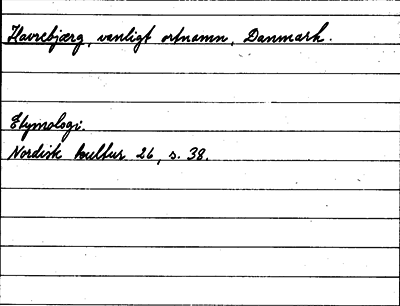 Havrebjærg, vanligt ortnamn, Danmark.
Etymologi.
Nordisk kultur 26, s. 38.